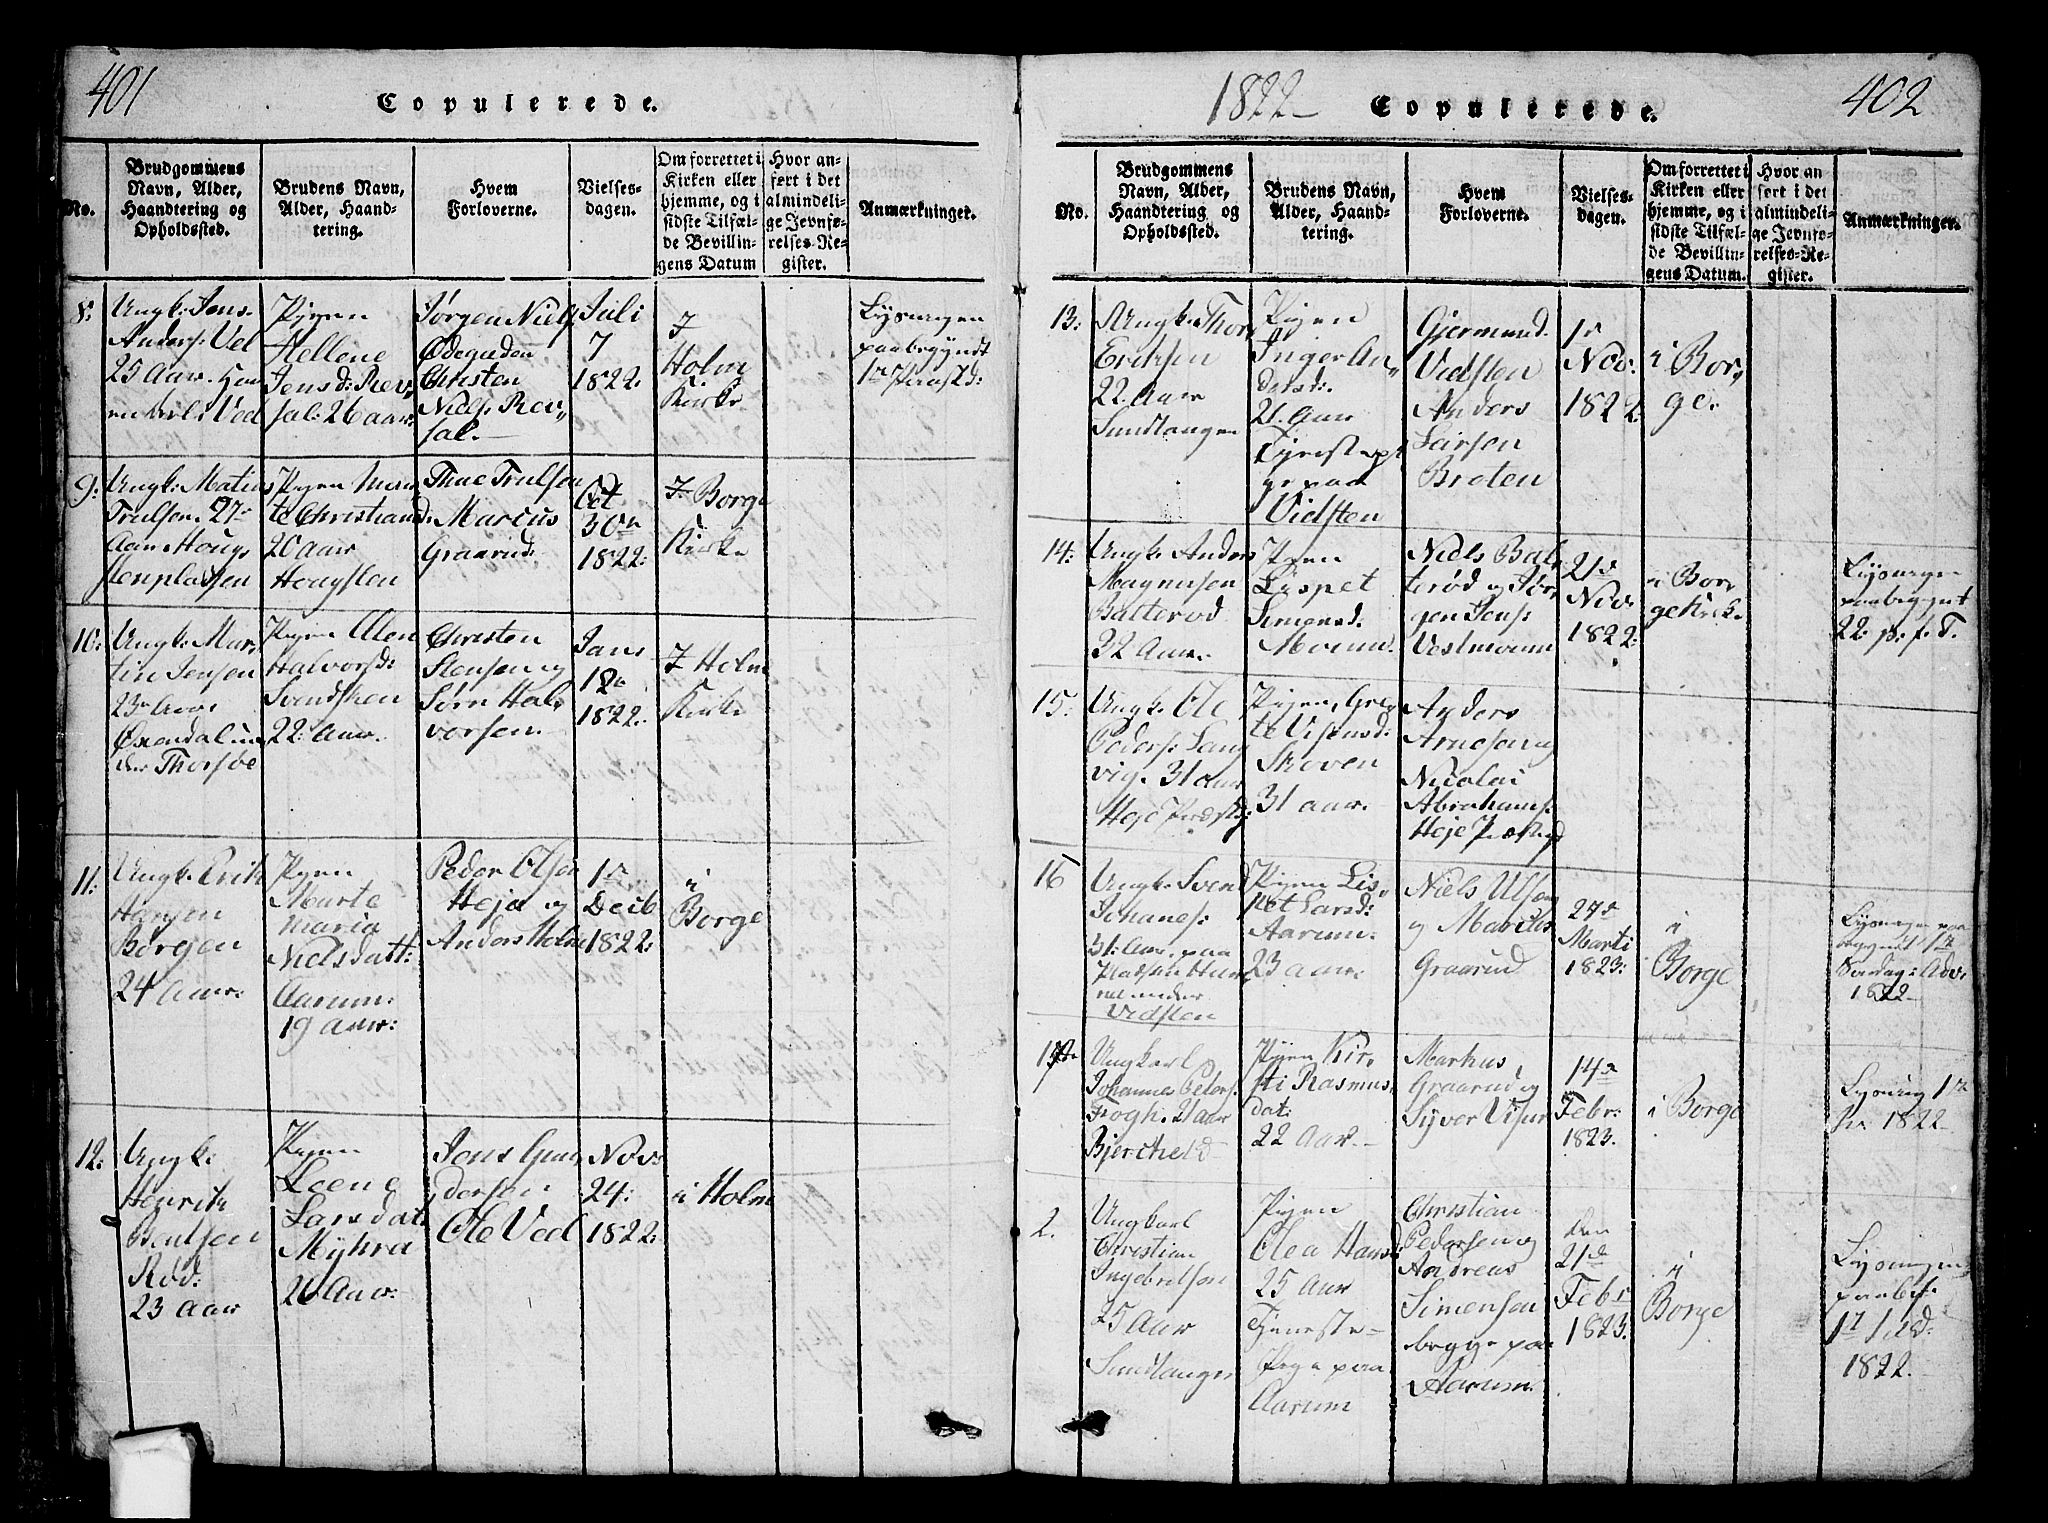 401
Copulerede.
No.
Brudgommens
Navn, Alder,
Haandtering og
Opholdssted.
Brudens Navn,
Alder, Haand-
tering.
Hvem
Forloverne.
Vielses-
dagen.
Om forrettet i
Kirken eller
hjemme, og i
sidste Tilfæl-
de Bevillin-
gens Datum
Hvor an-
ført i det
almindeli-
ge Jevnfø-
relses-Re-
gister.
Anmærkninger.
8:
Ungk: Jens
Anders: Vel
25 Aar
Ved
Pigen
Hellene
Jensd: Rev,
sal: 26 aar.
Jørgen Niels,
Ødegaden
Christen
Niels: Rev,,
sal.
Juli
7
1822.
I
Holm
Kirke
Lysningen
paabegyndt
9:
Ungk: Matius
Trulsen 27
Aar Houg,
stenpladsen
Pigen
te Christiansd.
20 aar
Hougsten
Thue Trulsen
Marcus
Graarud
Oct
30n
1822:
I Borge
Kirke
10:
Ungk: Mar,
tin Jensen
23 Aar
Oxendal un,
der Thorsøe
Pigen Olen
Halvorsd:
Svendsken
22 Aar.
Christen
Stensen og
Sørn Hal,
vorsen.
Jan:
1822.
I Holm
Kirke
11:
Ungk: Erik
Hansen
Borgen
24 Aar.
Pigen
Marte
Maria
Nielsdatt:
Aarum:
19 Aar:
Peder Olsen
Heje og
Anders Holm
1s
Decb
1822:
i
Borge
12:
Ungk:
Henrik
Bentsen
Rød:
23 aar
Pigen
Leene
Larsdat
Myhra
26 Aar.
Jens Gun,
dersen
Ole Ved
Nov:
24:
1822:
i Holm
1822
Copulerede.
402
No.
Brudgommens
Navn, Alder,
Haandtering og
Opholdssted.
Brudens Navn,
Alder, Haand-
tering.
Hvem
Forloverne.
Vielses-
dagen.
Om forrettet i
Kirken eller
hjemme, og i
sidste Tilfæl-
de Bevillin-
gens Datum.
Hvor an-
ført i det
almindeli-
ge Jevnfø-
relses-Re-
gister.
Anmærkninger.
13:
Ungk: Thor,
Eriksen
22 Aar
Sundlangen
Pigen
Inger An,,
dersd:
21 Aar
Tjenestepi
ge paa
Vidsten
Gjermund
Vidsten
Anders
Larsen
Braten
1s
Nov:
1822:
i Bor,
ge.
14:
Ungk: Anders
Magnusen
Balterød
32 Aar.
Pigen
Lispet
Simensd.
Moum
Niels Bal,
terød og Jør,
gen Jens:
Vestmoum
21s
Nov:
1822:
i Bor
ge Kirk.
Lysningen
paabegynt
22: p: f: T.
15.
Ungk: Ole
Peders: Lang
vig. 31 aar
Heje Præstg:
Pigen, Gre,
te
Skoven
31 aar.
Anders
Arnesen og
Nicolai
Abrahams:
Heje Præstg
16
Ungk: Svend
Johanes:
31: Aar. paa
Pladsen
under
Vidsten
Pigen Lis,,
pet Larsd:
Aarum
23 aar.
Niels Ulsen
og Marcus
Graarud
27s
Marti
1823:
i
Borge
Lysningen paa
begyndt 1ste
Søndag i Adv:
1822
Ungkarl
Johannes Peders:
Bjerkeld
Pigen Kir,
sti Rasmus,
dat:
22 Aar.
Markus
Graarud og
Syver
14s
Febr:
1823.
i Borge
Lysning
1822
2.
Ungkarl
Christian
Ingebretsen
25 Aar
Sundlangen
Pigen
Olea Hansd:
25 Aar
Tjeneste-
Pige paa
Aarum
Christian
Pedersen og
Andreas
Simensen
begge paa
Aarum.
den
21s
Febr
1823.
i
Borge
Lysningen
paabe:
1822.